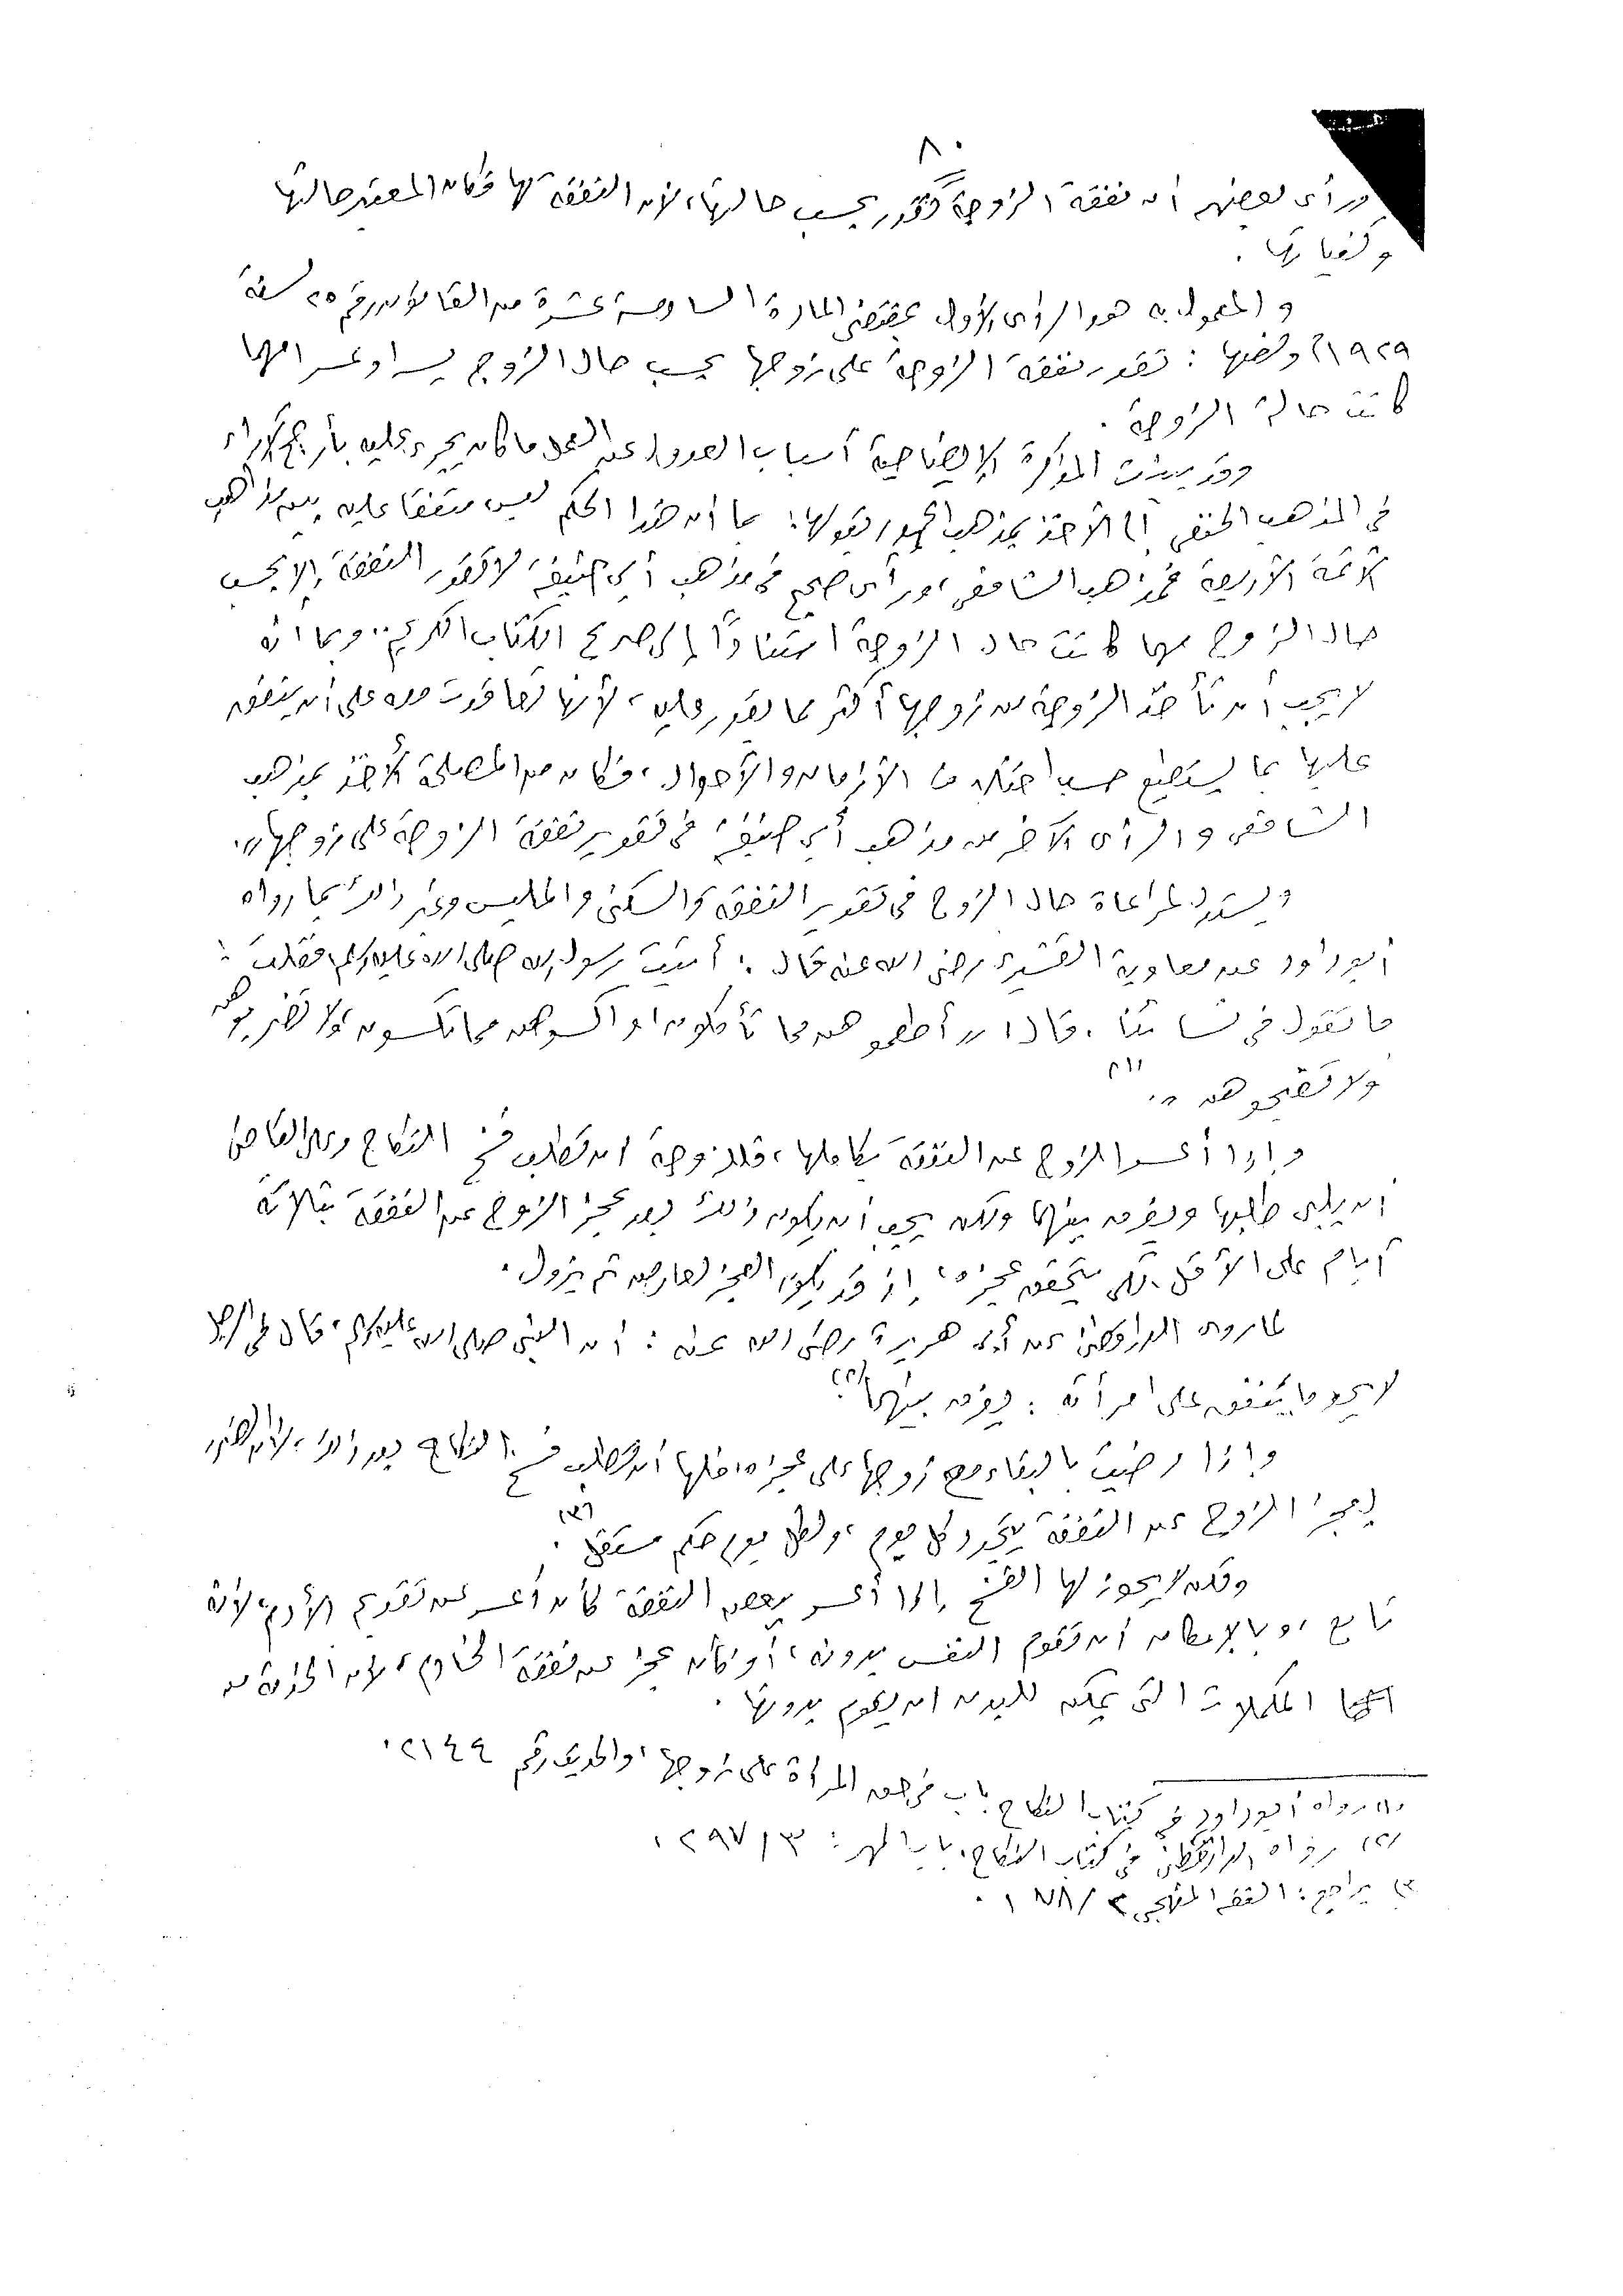 ٨٠
ورأى بعضهم أن نفقة الزوجة تقدر بحسب حالتها، لأن النفقة لها فكان المعتبر حالتها
وكفايتها .
والمعمول به هو الرأى الأول بمقتضى المادة السادسة عشرة من القانون رقم ٢٥ لسنة
١٩٢٩م ونصها : تقدر نفقة الزوجة على زوجها بحسب حال الزوج يسرا وعسرا مهما
كانت حالة الزوجة .
وقد بينت المذكرة الإيضاحية أسباب العدول عن العمل ما كان يجرى عليه بأرجح الآراء
فى المذهب الحنفى إلى الأخذ بمذهب الجمهور بقولها : بما أن هذا الحكم ليس متفقا عليه بين مذاهب
الأئمة الأربعة فمذهب الشافعى، ورأى صحيح فى مذهب أبى حنيفة، لا تقدر النفقة إلا بحسب
حال الزوج مهما كانت حال الزوجة استنادًا إلى صريح الكتاب الكريم .. وبما أنه
لا يجب أن تأخذ الزوجة من زوجها أكثر مما يقدر عليه، لأنها تعاقدت معه على أن ينفق
عليها بما يستطيع حسب اختلاف الأزمان والأحوال، فكان من المصلحة الأخذ بمذهب
الشافعى والرأى الآخر من مذهب أبى حنيفة فى تقدير نفقة الزوجة على زوجها" .
ويستدل لمراعاة حال الزوج فى تقدير النفقة والسكنى والملبس وغير ذلك بما رواه
أبو داود عن معاوية القشيرى رضى الله عنه قال : أتيت رسول الله صلى الله عليه وسلم فقلت :
ما تقول فى نسائنا . قال : "أطعموهن مما تأكلون، واكسوهن مما تكسون، ولا تضربوهن
ولا تقبحوهن " . (١)
وإذا أعسر الزوج عن النفقة بكاملها، فللزوجة أن تطلب فسخ النكاح وعلى القاضى
أن يلبى طلبها ويفرق بينهما ولكن يجب أن يكون ذلك بعد عجز الزوج عن النفقة بثلاثة
أيام على الأقل، لكى يتحقق عجزه، إذ قد يكون العجز لعارض ثم يزول .
لما روى الدارقطنى عن أبى هريرة رضى الله عنه : أن النبى صلى الله عليه وسلم، قال فى الرجل
لا يجد ما ينفق على امرأته : يفرق بينهما (٢)
وإذا رضيت بالبقاء مع زوجها على عجزه، فلها أن تطلب فسخ النكاح بعد ذلك، لأن الضرر
لعجز الزوج عن النفقة يتجدد كل يوم، ولكل يوم حكم مستقل . (٣)
ولكن لا يجوز لها الفسخ إذا أعسر ببعض النفقة كأن أعسر عن تقديم الأدم، لأنه
تابع، وبالإمكان أن تقوم النفس بدونه، أو كان عجز عن نفقة الخادم، لأن الخدمة من
المكملات التى يمكن للبدن أن يقوم بدونها .
(١) رواه أبو داود فى كتاب النكاح باب فى حق المرأة على زوجها، والحديث رقم ٢١٤٤ .
(٢) رواه الدارقطنى فى كتاب النكاح، باب المهر : ٣/ ٢٩٧ .
(٣) يراجع : الفقه المنهجى ٢/ ١٧٨ .